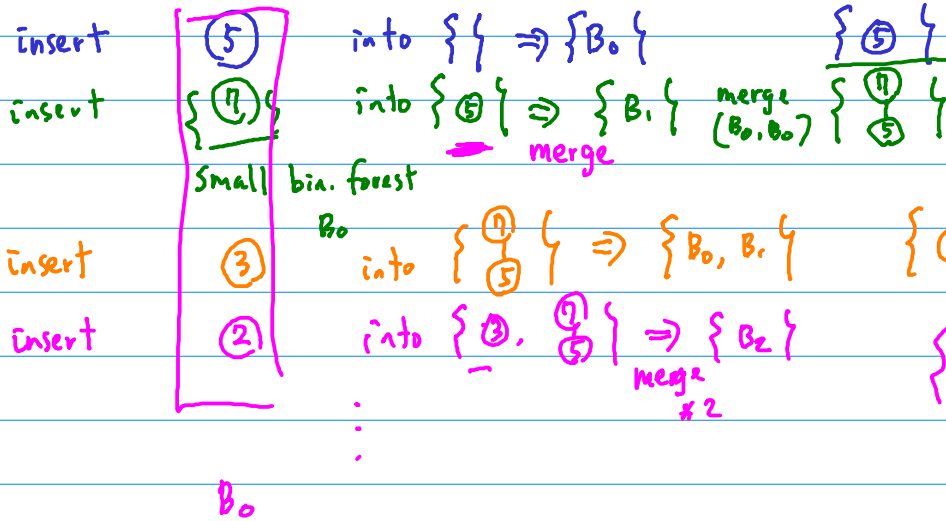 insert 5 into { } ⇒ { B₀ } { 5 }
insert { 7 } into { 5 } ⇒ { B₁ } merge (B₀, B₀) { 7 5 }
merge
small bin. forest
B₀
insert 3 into { 7 5 } ⇒ { B₀, B₁ } {
insert 2 into { 3, 7 5 } ⇒ { B₂ } {
merge
* 2
B₀